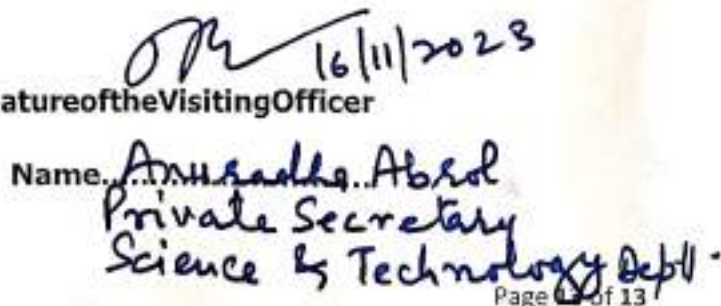 16/11/2023
atureoftheVisitingOfficer
Name..Anuradha..Abrol
Private Secretary
Science & Technology Deptt.
Page of 13